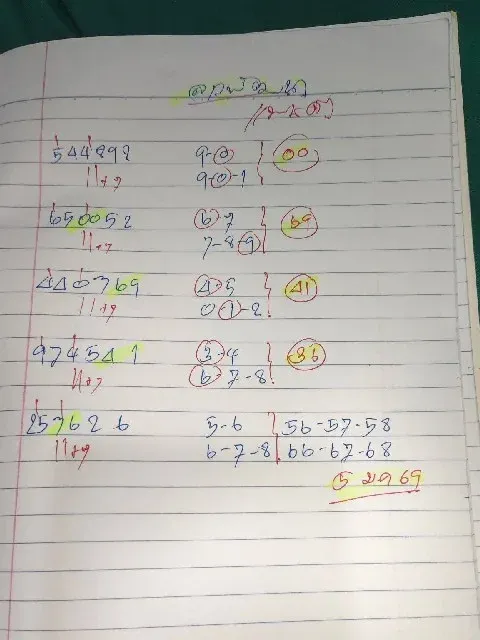 544292
9-0
00
11+9
9-0-1
650052
6-7
69
11+9
7-8-9
440769
4-5
41
11+9
0-1-2
974541
3-4
36
11+9
6-7-8
257626
5-6
56-57-58
11+9
6-7-8
66-67-68
69